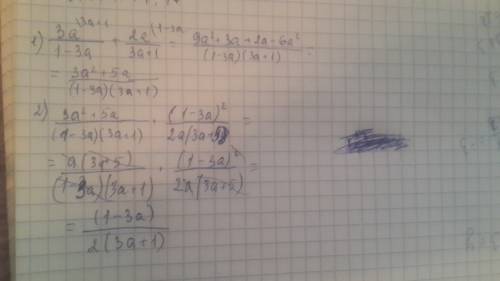 1) 3a/(1-3a) (3a+1 + 2a/(3a+1) (1-3a = (9a²+3a+2a-6a²)/((1-3a)(3a+1)) =
= (3a²+5a)/((1-3a)(3a+1))
2) (3a²+5a)/((1-3a)(3a+1)) · (1-3a)²/(2a(3a+5)) =
= a(3+5)/((1-3a)(3a+1)) · (1-3a)²/(2a(3a+5)) =
= (1-3a)/(2(3a+1))